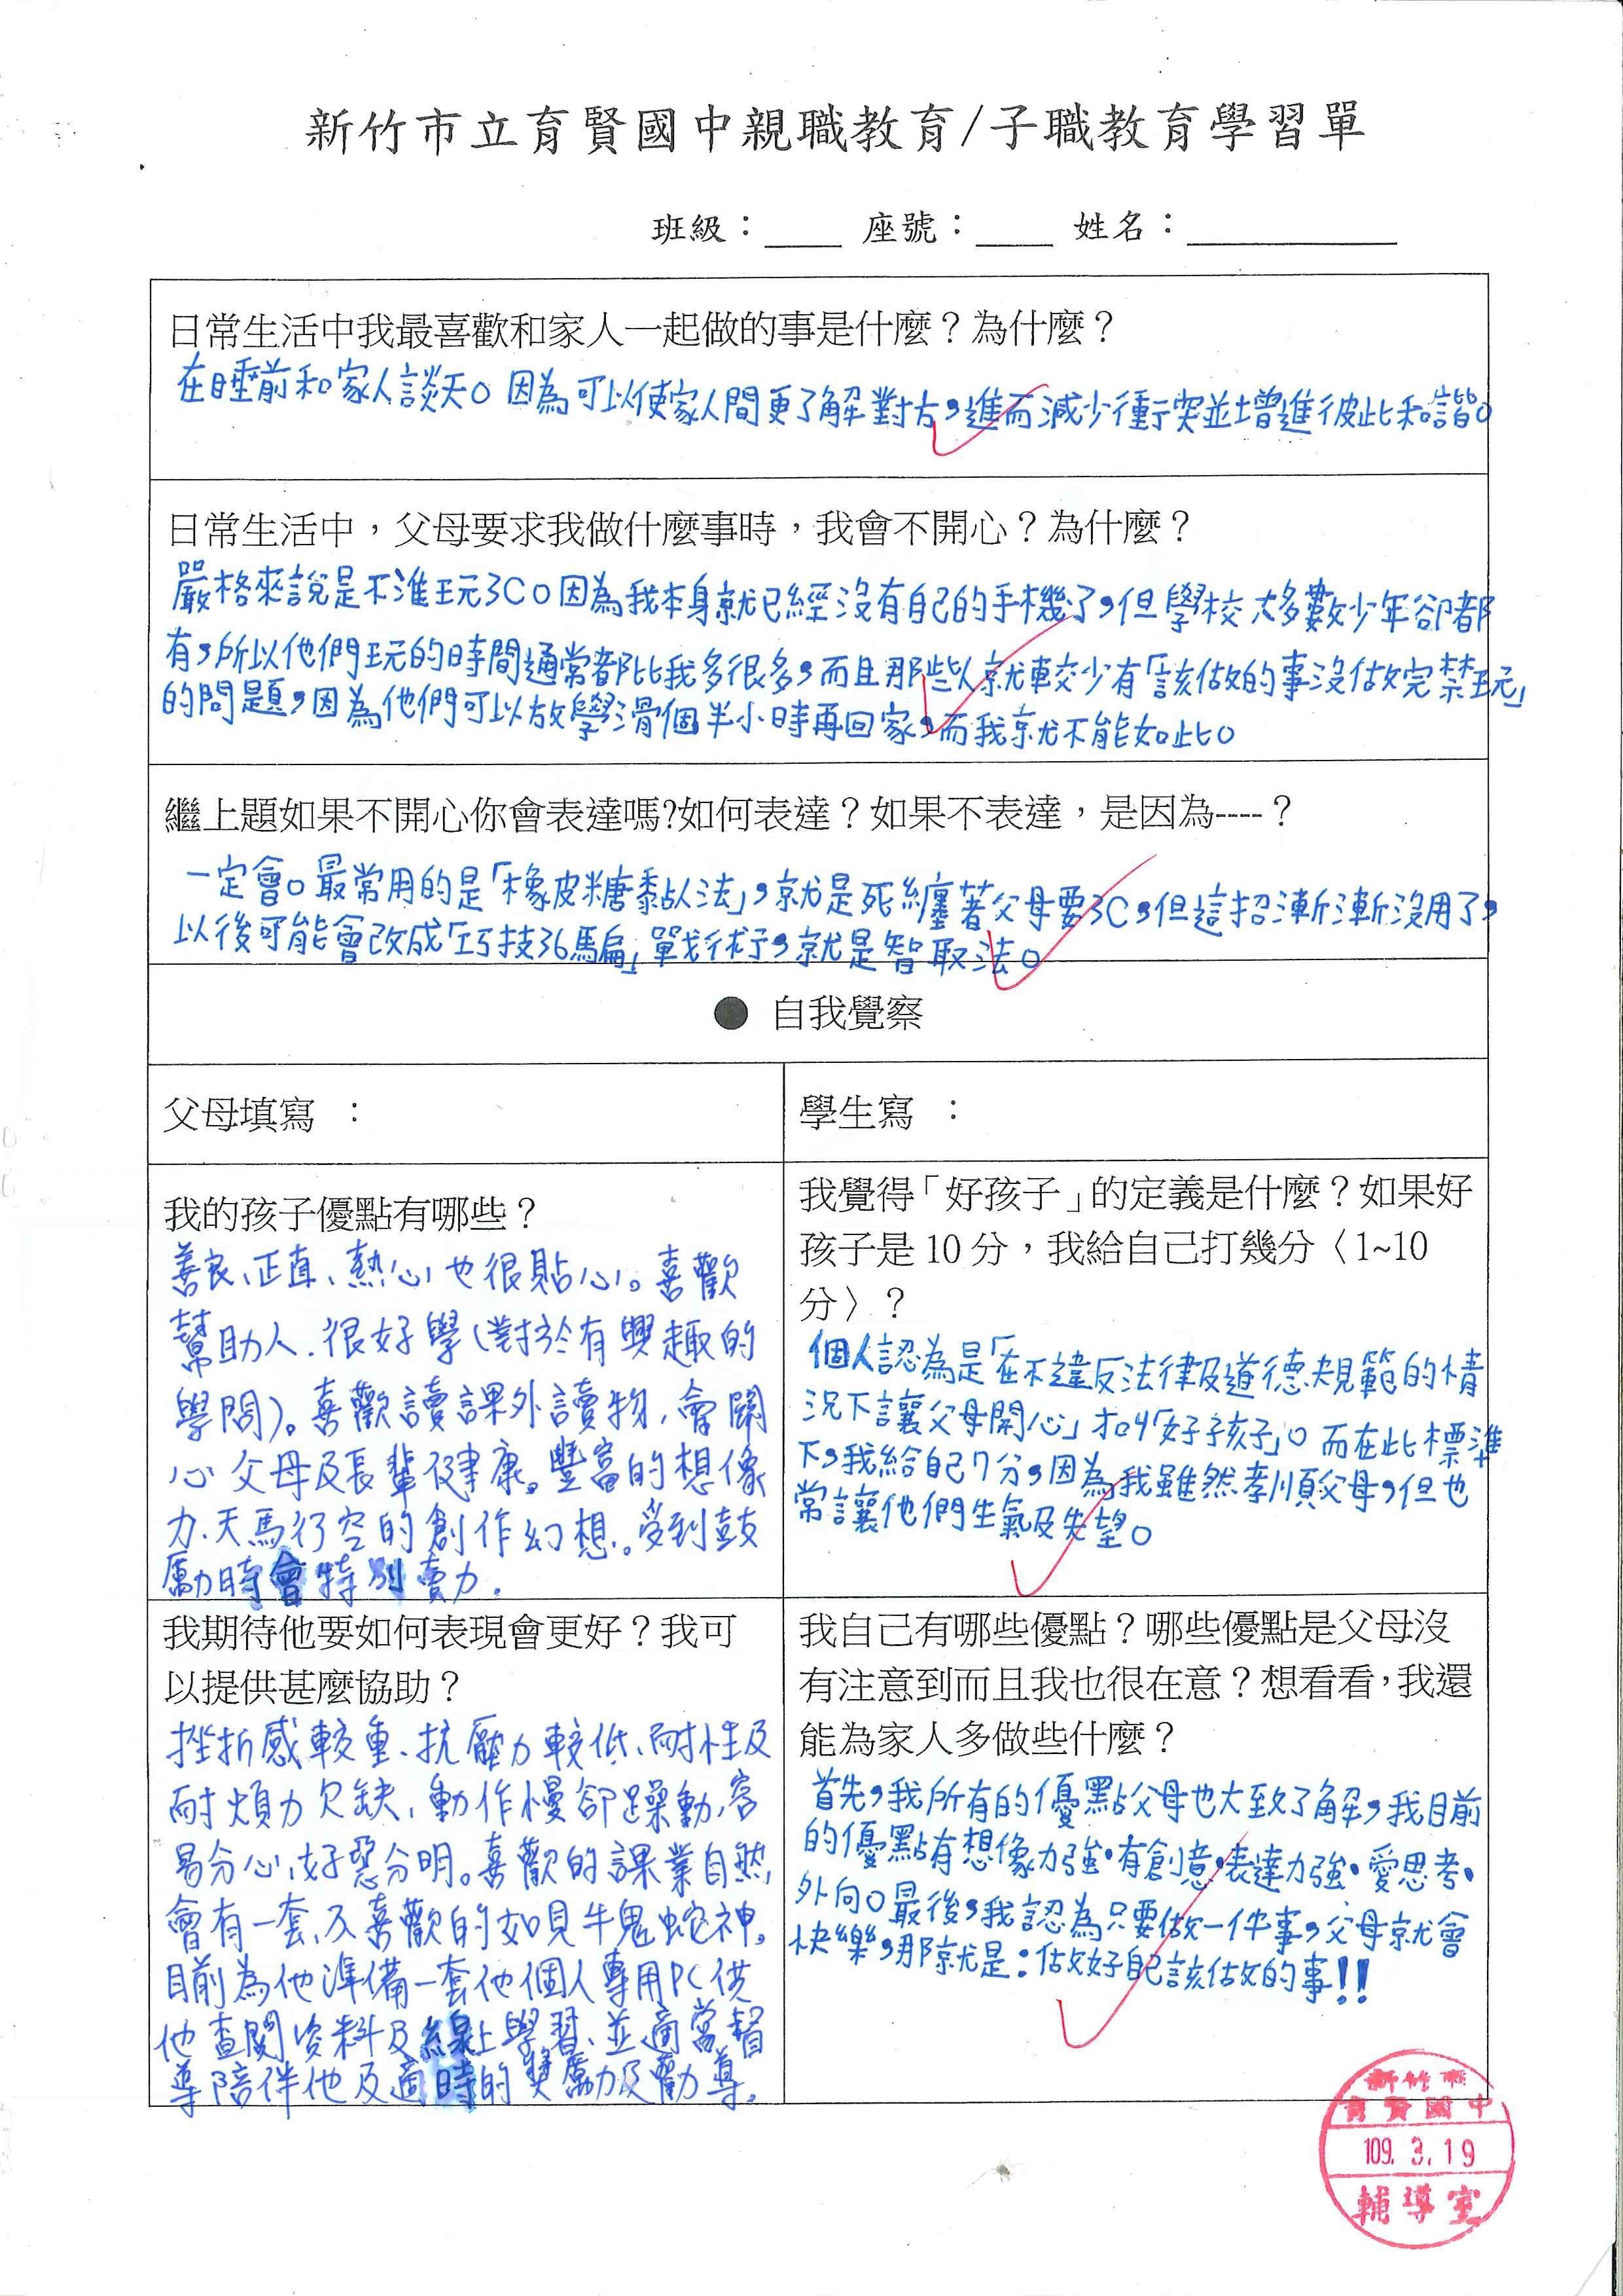 新竹市立育賢國中親職教育/子職教育學習單
班級：____ 座號：____ 姓名：___________
日常生活中我最喜歡和家人一起做的事是什麼？為什麼？
在睡前和家人談天。因為可以使家人間更了解對方，進而減少衝突並增進彼此和諧。
日常生活中，父母要求我做什麼事時，我會不開心？為什麼？
嚴格來說是不准玩3C。因為我本身就已經沒有自己的手機了，但學校大多數少年卻都
有，所以他們玩的時間通常都比我多很多，而且那些人就較少有「該做的事沒做完禁玩」
的問題，因為他們可以放學滑個半小時再回家，而我就不能如此。
繼上題如果不開心你會表達嗎?如何表達？如果不表達，是因為----？
一定會。最常用的是「橡皮糖黏人法」，就是死纏著父母要3C，但這招漸漸沒用了，
以後可能會改成「巧技36騙」戰術，就是智取法。
● 自我覺察
父母填寫 ：
學生寫 ：
我的孩子優點有哪些？
善良、正直、熱心，也很貼心。喜歡
幫助人．很好學(對於有興趣的
學問)。喜歡讀課外讀物，會關
心父母及長輩健康。豐富的想像
力、天馬行空的創作幻想。受到鼓
勵時會特別賣力．
我覺得「好孩子」的定義是什麼？如果好
孩子是 10 分，我給自己打幾分〈1~10
分〉？
個人認為是「在不違反法律及道德規範的情
況下讓父母開心」才叫「好孩子」。而在此標準
下，我給自己7分，因為我雖然孝順父母，但也
常讓他們生氣及失望。
我期待他要如何表現會更好？我可
以提供甚麼協助？
挫折感較重、抗壓力較低、耐性及
耐煩力欠缺，動作慢卻躁動，容
易分心，好惡分明。喜歡的課業自然
會有一套，不喜歡的如見牛鬼蛇神。
目前為他準備一套他個人專用PC供
他查閱資料及線上學習、並適當督
導陪伴他及適時的獎勵及勸導。
我自己有哪些優點？哪些優點是父母沒
有注意到而且我也很在意？想看看，我還
能為家人多做些什麼？
首先，我所有的優點父母也大致了解，我目前
的優點有想像力強•有創意•表達力強•愛思考•
外向。最後，我認為只要做一件事，父母就會
快樂，那就是：做好自己該做的事!!
新竹市
育賢國中
109. 3. 19
輔導室